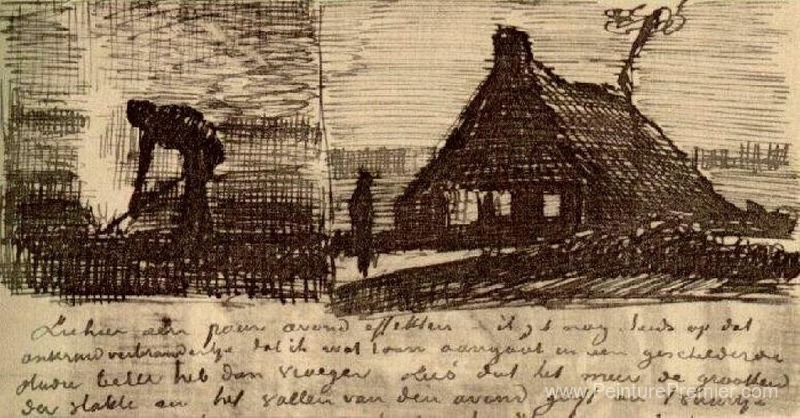 Ziehier een paar avond effekten – ik zit nog steeds op dat
onkruidverbrandertje dat ik wat toon aangaat in een geschilderde
studie beter heb dan vroeger dus dat het meer de grootheid
der vlakte en het vallen van den avond geeft
www.PeinturePremier.com